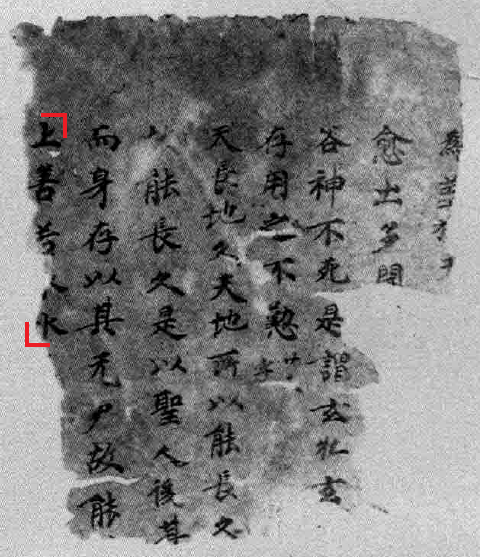 愈出多聞
谷神不死是謂玄牝玄
存用之不懃
天長地久天地所以能長久
能長久是以聖人後其
而身存以其无尸故能
上善若水水